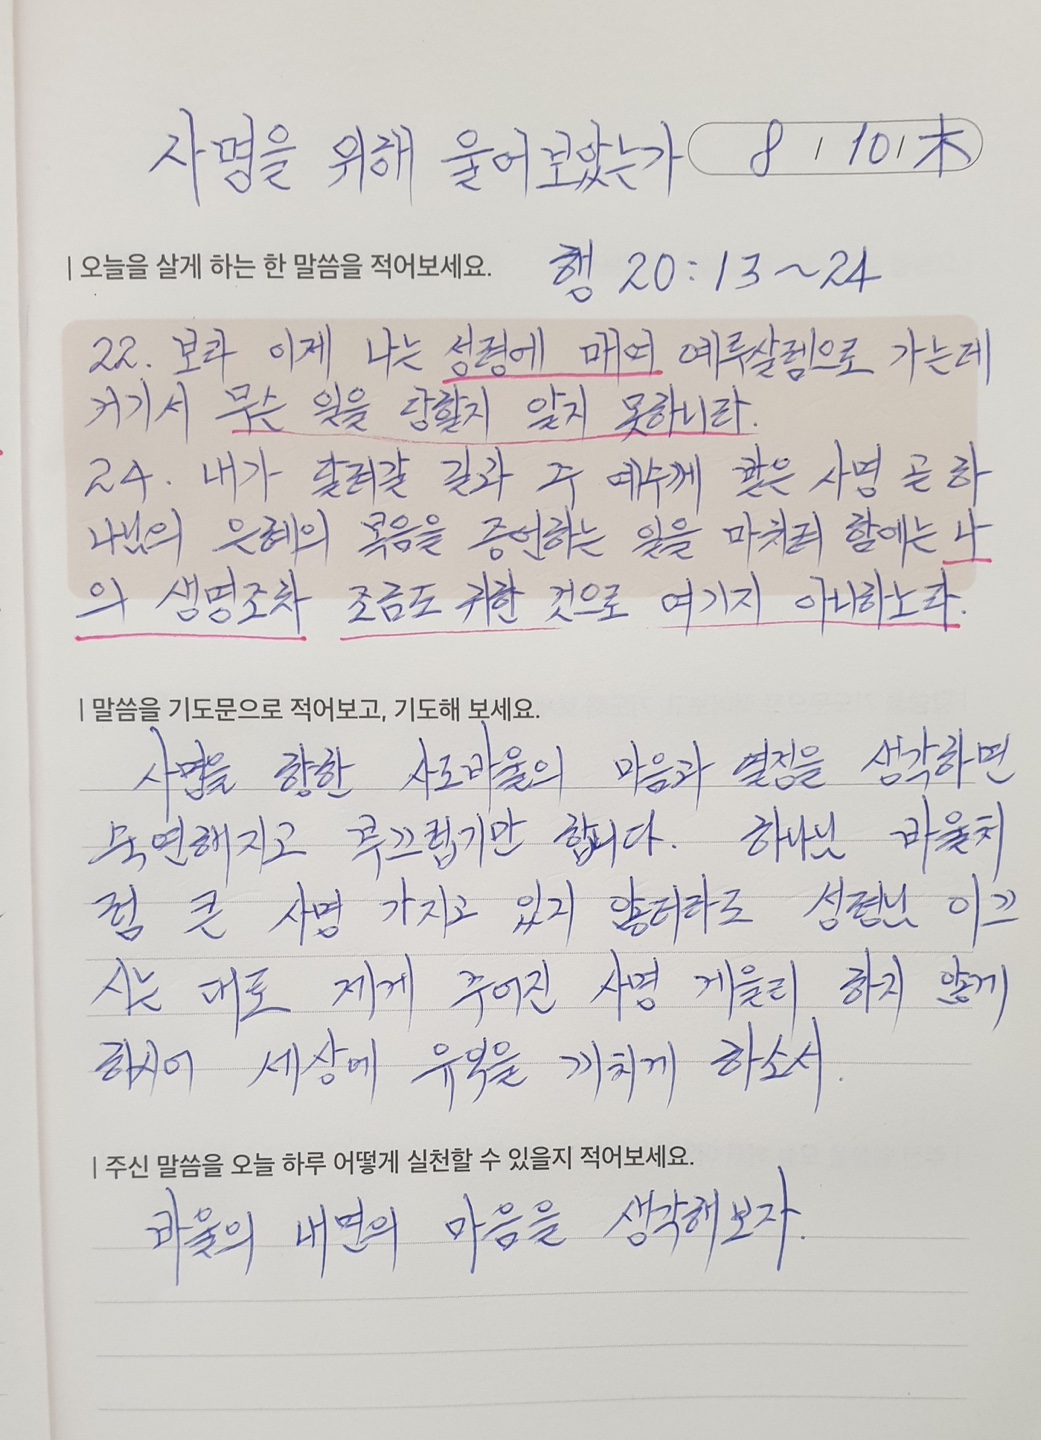 사명을 위해 울어보았는가 8 | 10 | 木
| 오늘을 살게 하는 한 말씀을 적어보세요. 행 20:13~24
22. 보라 이제 나는 성령에 매여 예루살렘으로 가는데
거기서 무슨 일을 당할지 알지 못하니라.
24. 내가 달려갈 길과 주 예수께 받은 사명 곧 하
나님의 은혜의 복음을 증언하는 일을 마치려 함에는 나
의 생명조차 조금도 귀한 것으로 여기지 아니하노라.
| 말씀을 기도문으로 적어보고, 기도해 보세요.
사명을 향한 사도바울의 마음과 열정을 생각하면
숙연해지고 부끄럽기만 합니다. 하나님 바울처
럼 큰 사명 가지고 있지 않더라도 성령님 이끄
시는 대로 제게 주어진 사명 게을리 하지 않게
하시어 세상에 유익을 끼치게 하소서.
| 주신 말씀을 오늘 하루 어떻게 실천할 수 있을지 적어보세요.
바울의 내면의 마음을 생각해보자.